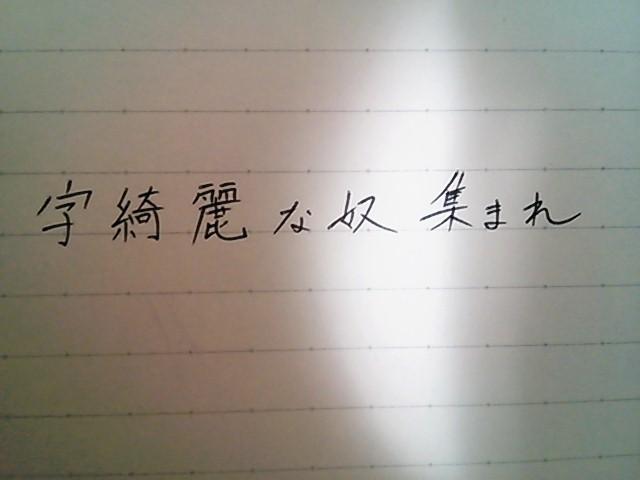 字綺麗な奴 集まれ